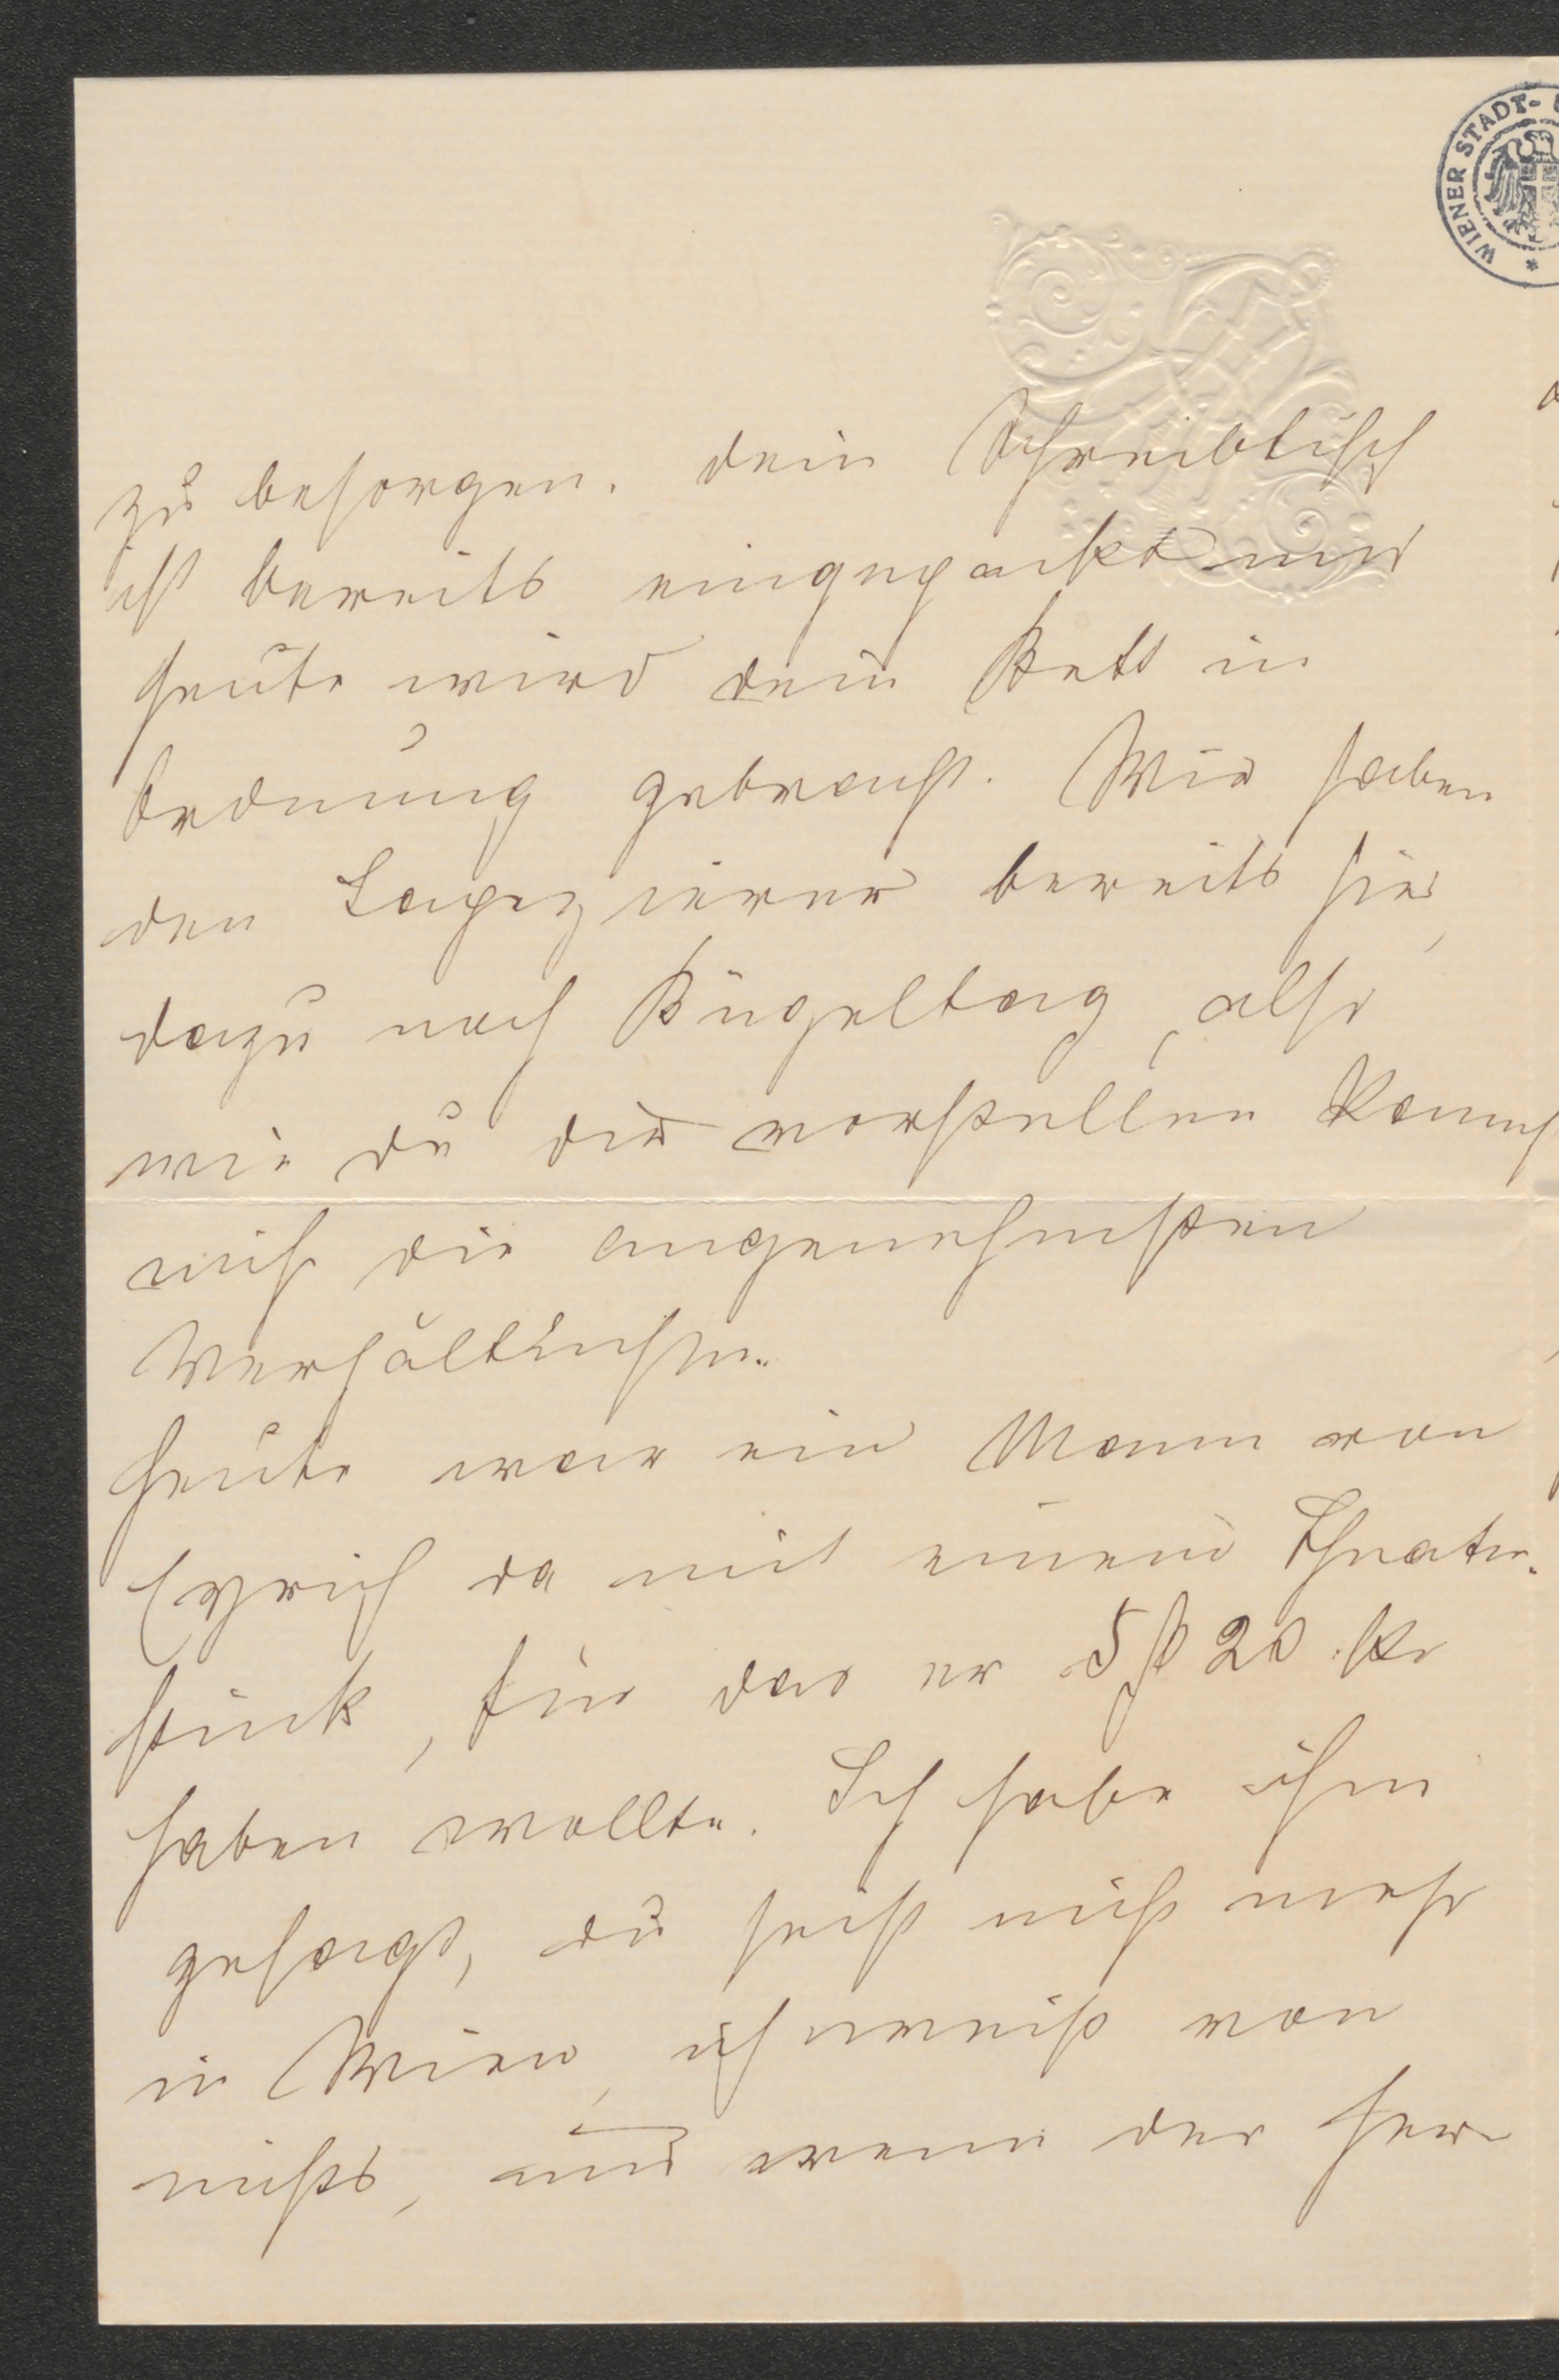 WIENER STADT-
zu besorgen. Dein Schreibtisch
ist bereits eingepackt und
heute wird dein Bett in
Ordnung gebracht. Wir haben
den Tapezierer bereits hier,
dazu noch Bügeltag, also
wie du dir vorstellen kannst
nicht die angenehmsten
Verhältnisse.
Heute war ein Mann von
Eyrich da mit einem Theater-
stück, für das er 5 fl 20 Kr
haben wollte. Ich habe ihm
gesagt, du seist nicht mehr
in Wien, ich weiß von
nichts, und wenn der Herr